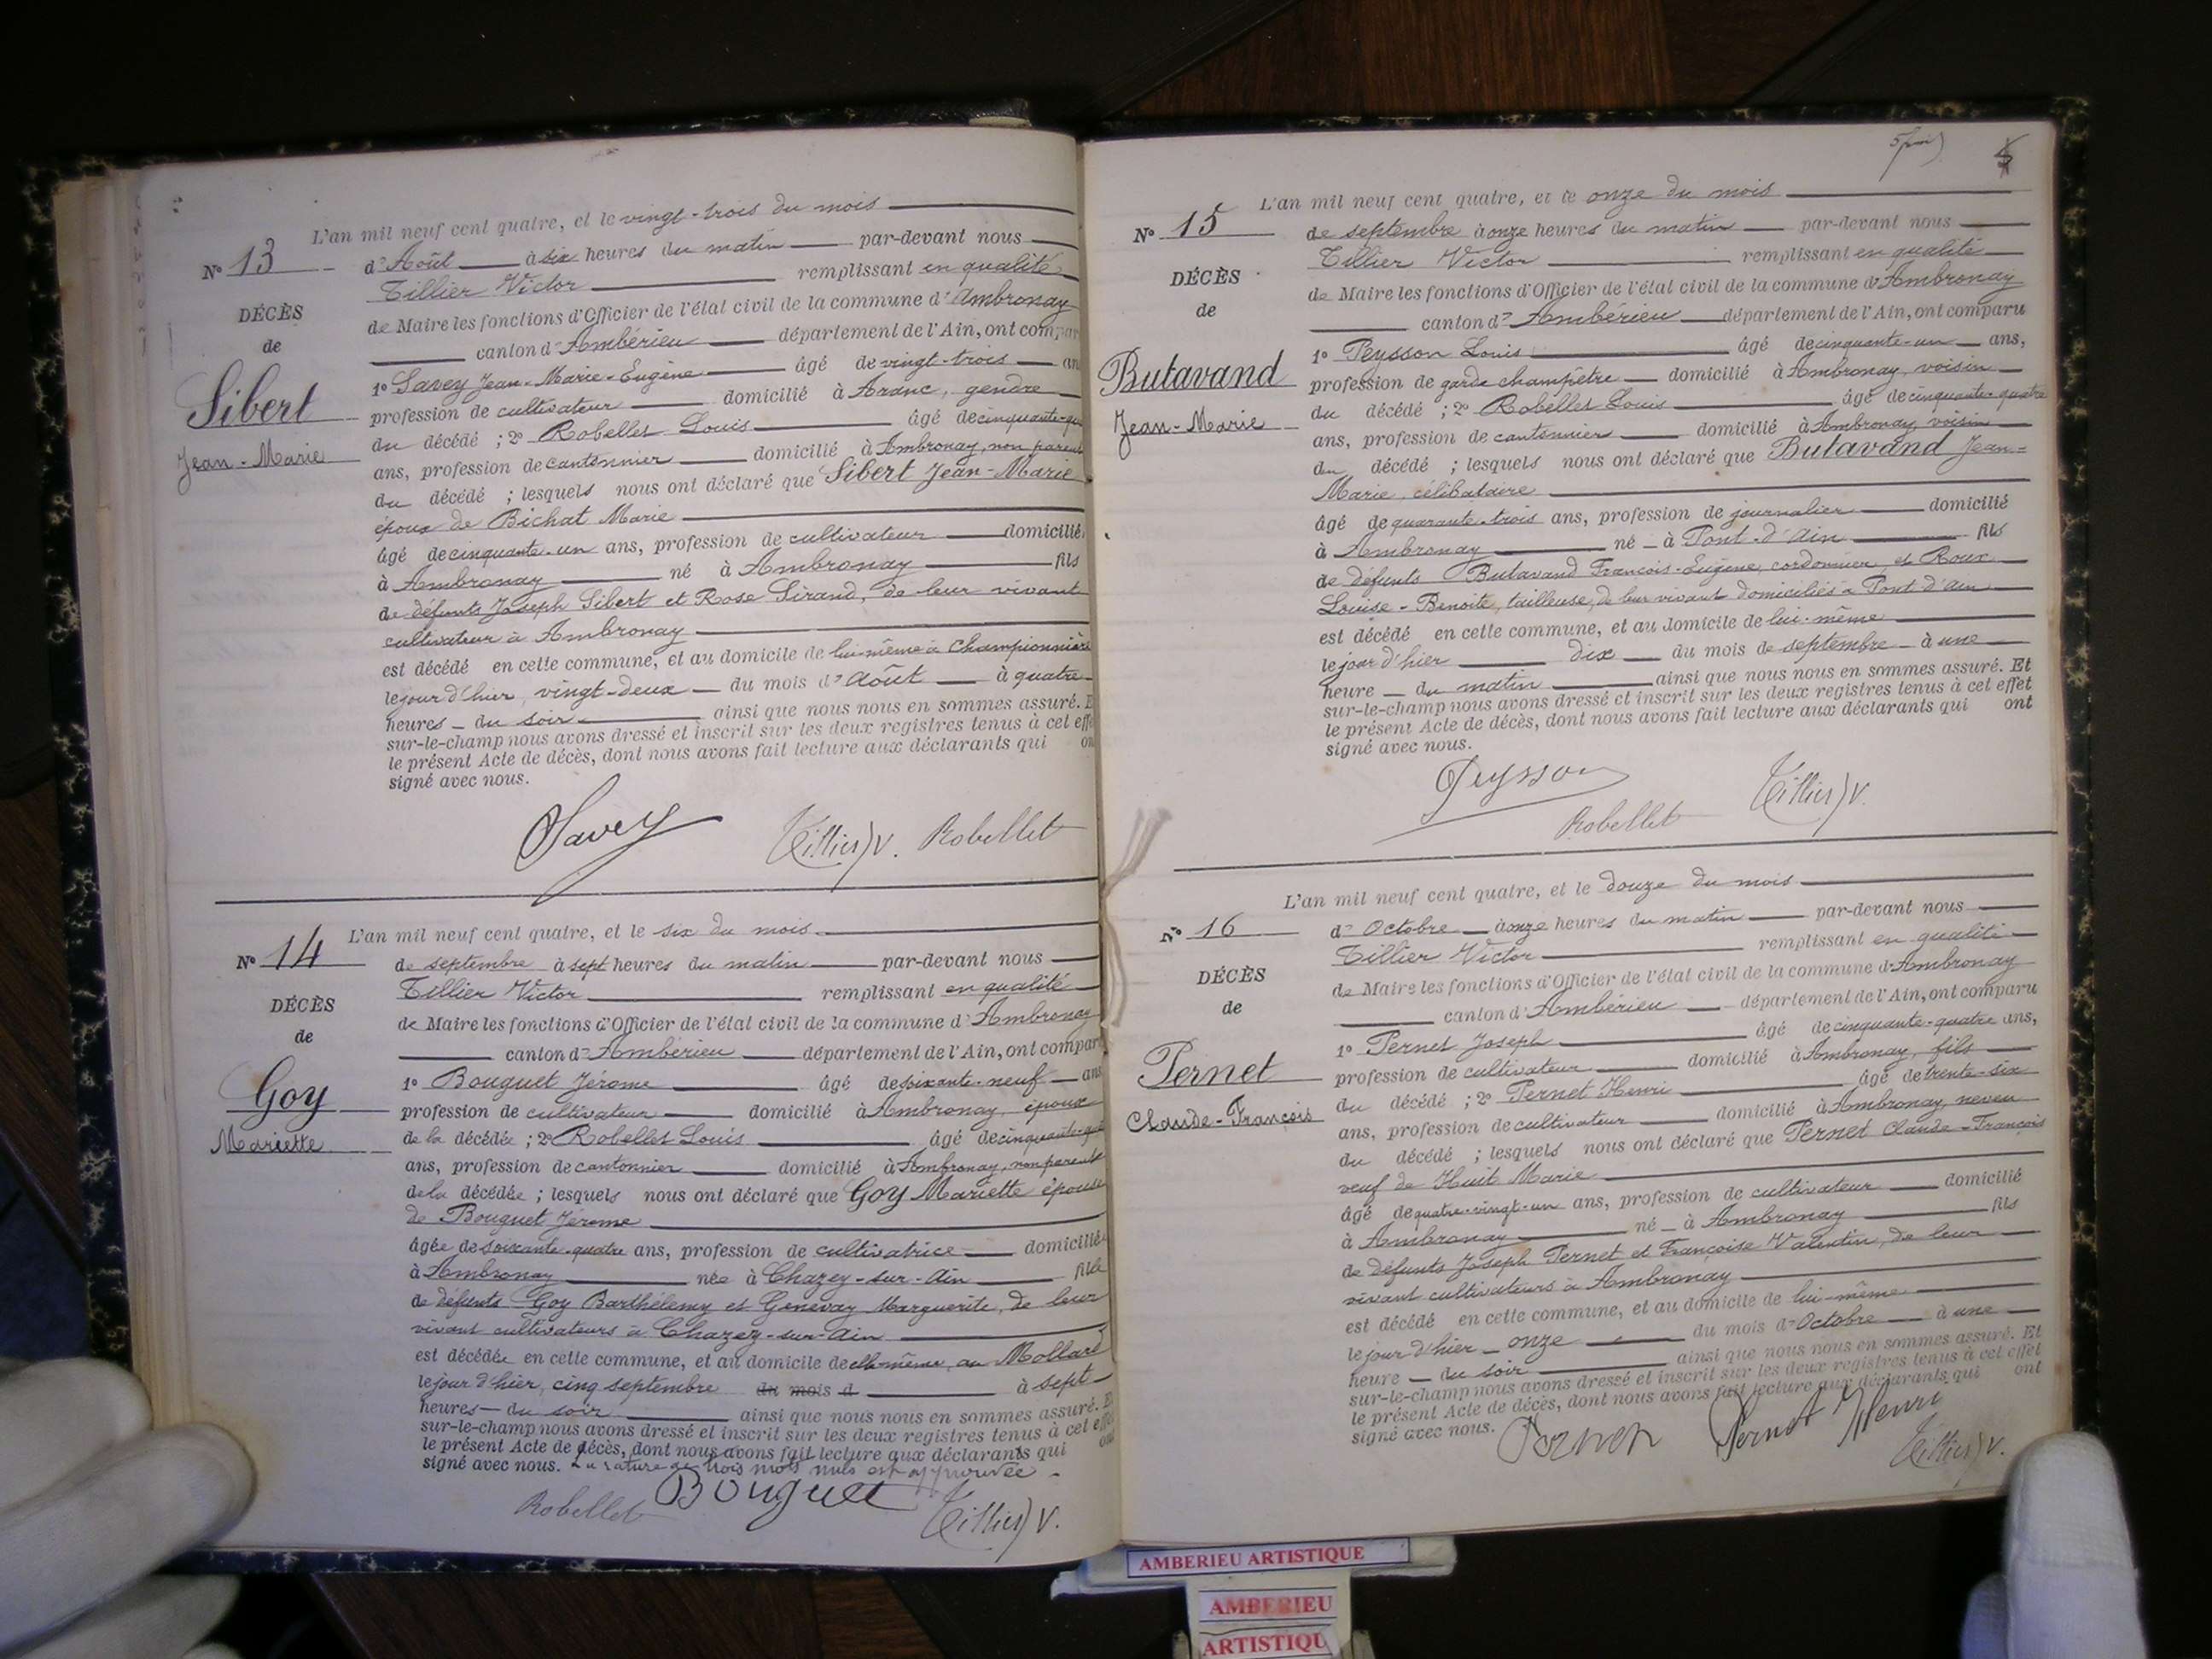 L'an mil neuf cent quatre, et le vingt-trois du mois
N° 13
d'Août à six heures du matin par-devant nous
Tillier Victor remplissant en qualité
DÉCÈS
de Maire les fonctions d'Officier de l'état civil de la commune d'Ambronay
de
canton d'Ambérieu département de l'Ain, ont compar
1° Savey Jean-Marie-Eugène âgé de vingt-trois an
Sibert
profession de cultivateur domicilié à Aranc, gendre
du décédé ; 2° Robellet Louis âgé de cinquante-qu
Jean-Marie
ans, profession de cantonnier domicilié à Ambronay, non parent
du décédé ; lesquels nous ont déclaré que Sibert Jean-Marie
époux de Bichat Marie
âgé de cinquante-un ans, profession de cultivateur domicilié
à Ambronay né à Ambronay fils
de défunts Joseph Sibert et Rose Sirand, de leur vivant
cultivateur à Ambronay
est décédé en cette commune, et au domicile de lui-même à Championnière
le jour d'hier, vingt-deux du mois d'Août à quatre
heures du soir ainsi que nous nous en sommes assuré. E
sur-le-champ nous avons dressé et inscrit sur les deux registres tenus à cet effe
le présent Acte de décès, dont nous avons fait lecture aux déclarants qui on
signé avec nous.
Savey Tillier V. Robellet
L'an mil neuf cent quatre, et le six du mois
N° 14
de septembre à sept heures du matin par-devant nous
Tillier Victor remplissant en qualité
DÉCÈS
de Maire les fonctions d'Officier de l'état civil de la commune d'Ambronay
de
canton d'Ambérieu département de l'Ain, ont compar
1° Bouguet Jérome âgé de soixante-neuf ans
Goy
profession de cultivateur domicilié à Ambronay, époux
Mariette
de la décédée ; 2° Robellet Louis âgé de cinquante-qua
ans, profession de cantonnier domicilié à Ambronay, non parent
de la décédée ; lesquels nous ont déclaré que Goy Mariette épouse
de Bouguet Jérome
âgée de soixante-quatre ans, profession de cultivatrice domiciliée
à Ambronay née à Chazey-sur-Ain fille
de défunts Goy Barthélemy et Genevay Marguerite, de leur
vivant cultivateurs à Chazey-sur-Ain
est décédée en cette commune, et au domicile de elle-même, au Mollard
le jour d'hier, cinq septembre du mois d à sept
heures du soir ainsi que nous nous en sommes assuré. Et
sur-le-champ nous avons dressé et inscrit sur les deux registres tenus à cet effet
le présent Acte de décès, dont nous avons fait lecture aux déclarants qui ont
signé avec nous. La rature de trois mots nuls est approuvée.
Robellet Bouguet Tillier V.
5
L'an mil neuf cent quatre, et le onze du mois
N° 15
de septembre à onze heures du matin par-devant nous
Tillier Victor remplissant en qualité
DÉCÈS
de Maire les fonctions d'Officier de l'état civil de la commune d'Ambronay
de
canton d'Ambérieu département de l'Ain, ont comparu
1° Peysson Louis âgé de cinquante-un ans,
Butavand
profession de garde champêtre domicilié à Ambronay, voisin
du décédé ; 2° Robellet Louis âgé de cinquante-quatre
Jean-Marie
ans, profession de cantonnier domicilié à Ambronay, voisin
du décédé ; lesquels nous ont déclaré que Butavand Jean-
Marie, célibataire
âgé de quarante-trois ans, profession de journalier domicilié
à Ambronay né à Pont-d'Ain fils
de défunts Butavand François-Eugène, cordonnier, et Roux
Louise-Benoite, tailleuse, de leur vivant domiciliés à Pont d'Ain
est décédé en cette commune, et au domicile de lui-même
le jour d'hier dix du mois de septembre à une
heure du matin ainsi que nous nous en sommes assuré. Et
sur-le-champ nous avons dressé et inscrit sur les deux registres tenus à cet effet
le présent Acte de décès, dont nous avons fait lecture aux déclarants qui ont
signé avec nous.
Peysson Robellet Tillier V.
L'an mil neuf cent quatre, et le douze du mois
N° 16
d'Octobre à onze heures du matin par-devant nous
Tillier Victor remplissant en qualité
DÉCÈS
de Maire les fonctions d'Officier de l'état civil de la commune d'Ambronay
de
canton d'Ambérieu département de l'Ain, ont comparu
1° Pernet Joseph âgé de cinquante-quatre ans,
Pernet
profession de cultivateur domicilié à Ambronay, fils
du décédé ; 2° Pernet Henri âgé de trente-six
Claude-François
ans, profession de cultivateur domicilié à Ambronay, neveu
du décédé ; lesquels nous ont déclaré que Pernet Claude-François
veuf de Huit Marie
âgé de quatre-vingt-un ans, profession de cultivateur domicilié
à Ambronay né à Ambronay fils
de défunts Joseph Pernet et Françoise Valentin, de leur
vivant cultivateurs à Ambronay
est décédé en cette commune, et au domicile de lui-même
le jour d'hier onze du mois d'Octobre à une
heure du soir ainsi que nous nous en sommes assuré. Et
sur-le-champ nous avons dressé et inscrit sur les deux registres tenus à cet effet
le présent Acte de décès, dont nous avons fait lecture aux déclarants qui ont
signé avec nous. Pernet Pernet Henri
Tillier V.
AMBERIEU ARTISTIQUE
AMBERIEU
ARTISTIQU